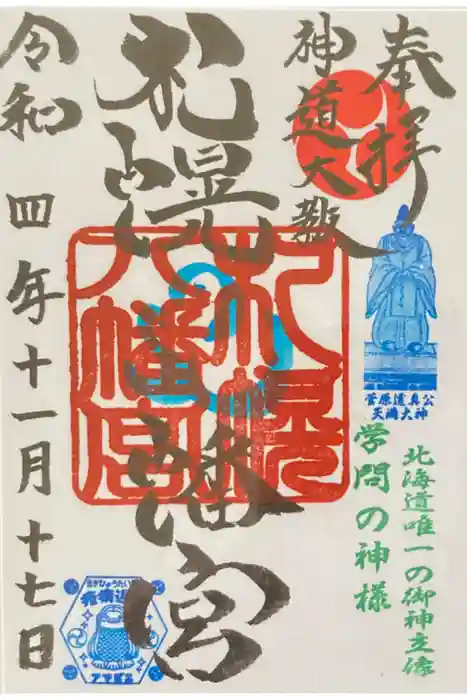 奉拝
神道大教
札幌八幡宮
札幌
八幡宮
菅原道真公
天満大神
北海道唯一の御神立像
学問の神様
令和四年十一月十七日
アマビエ